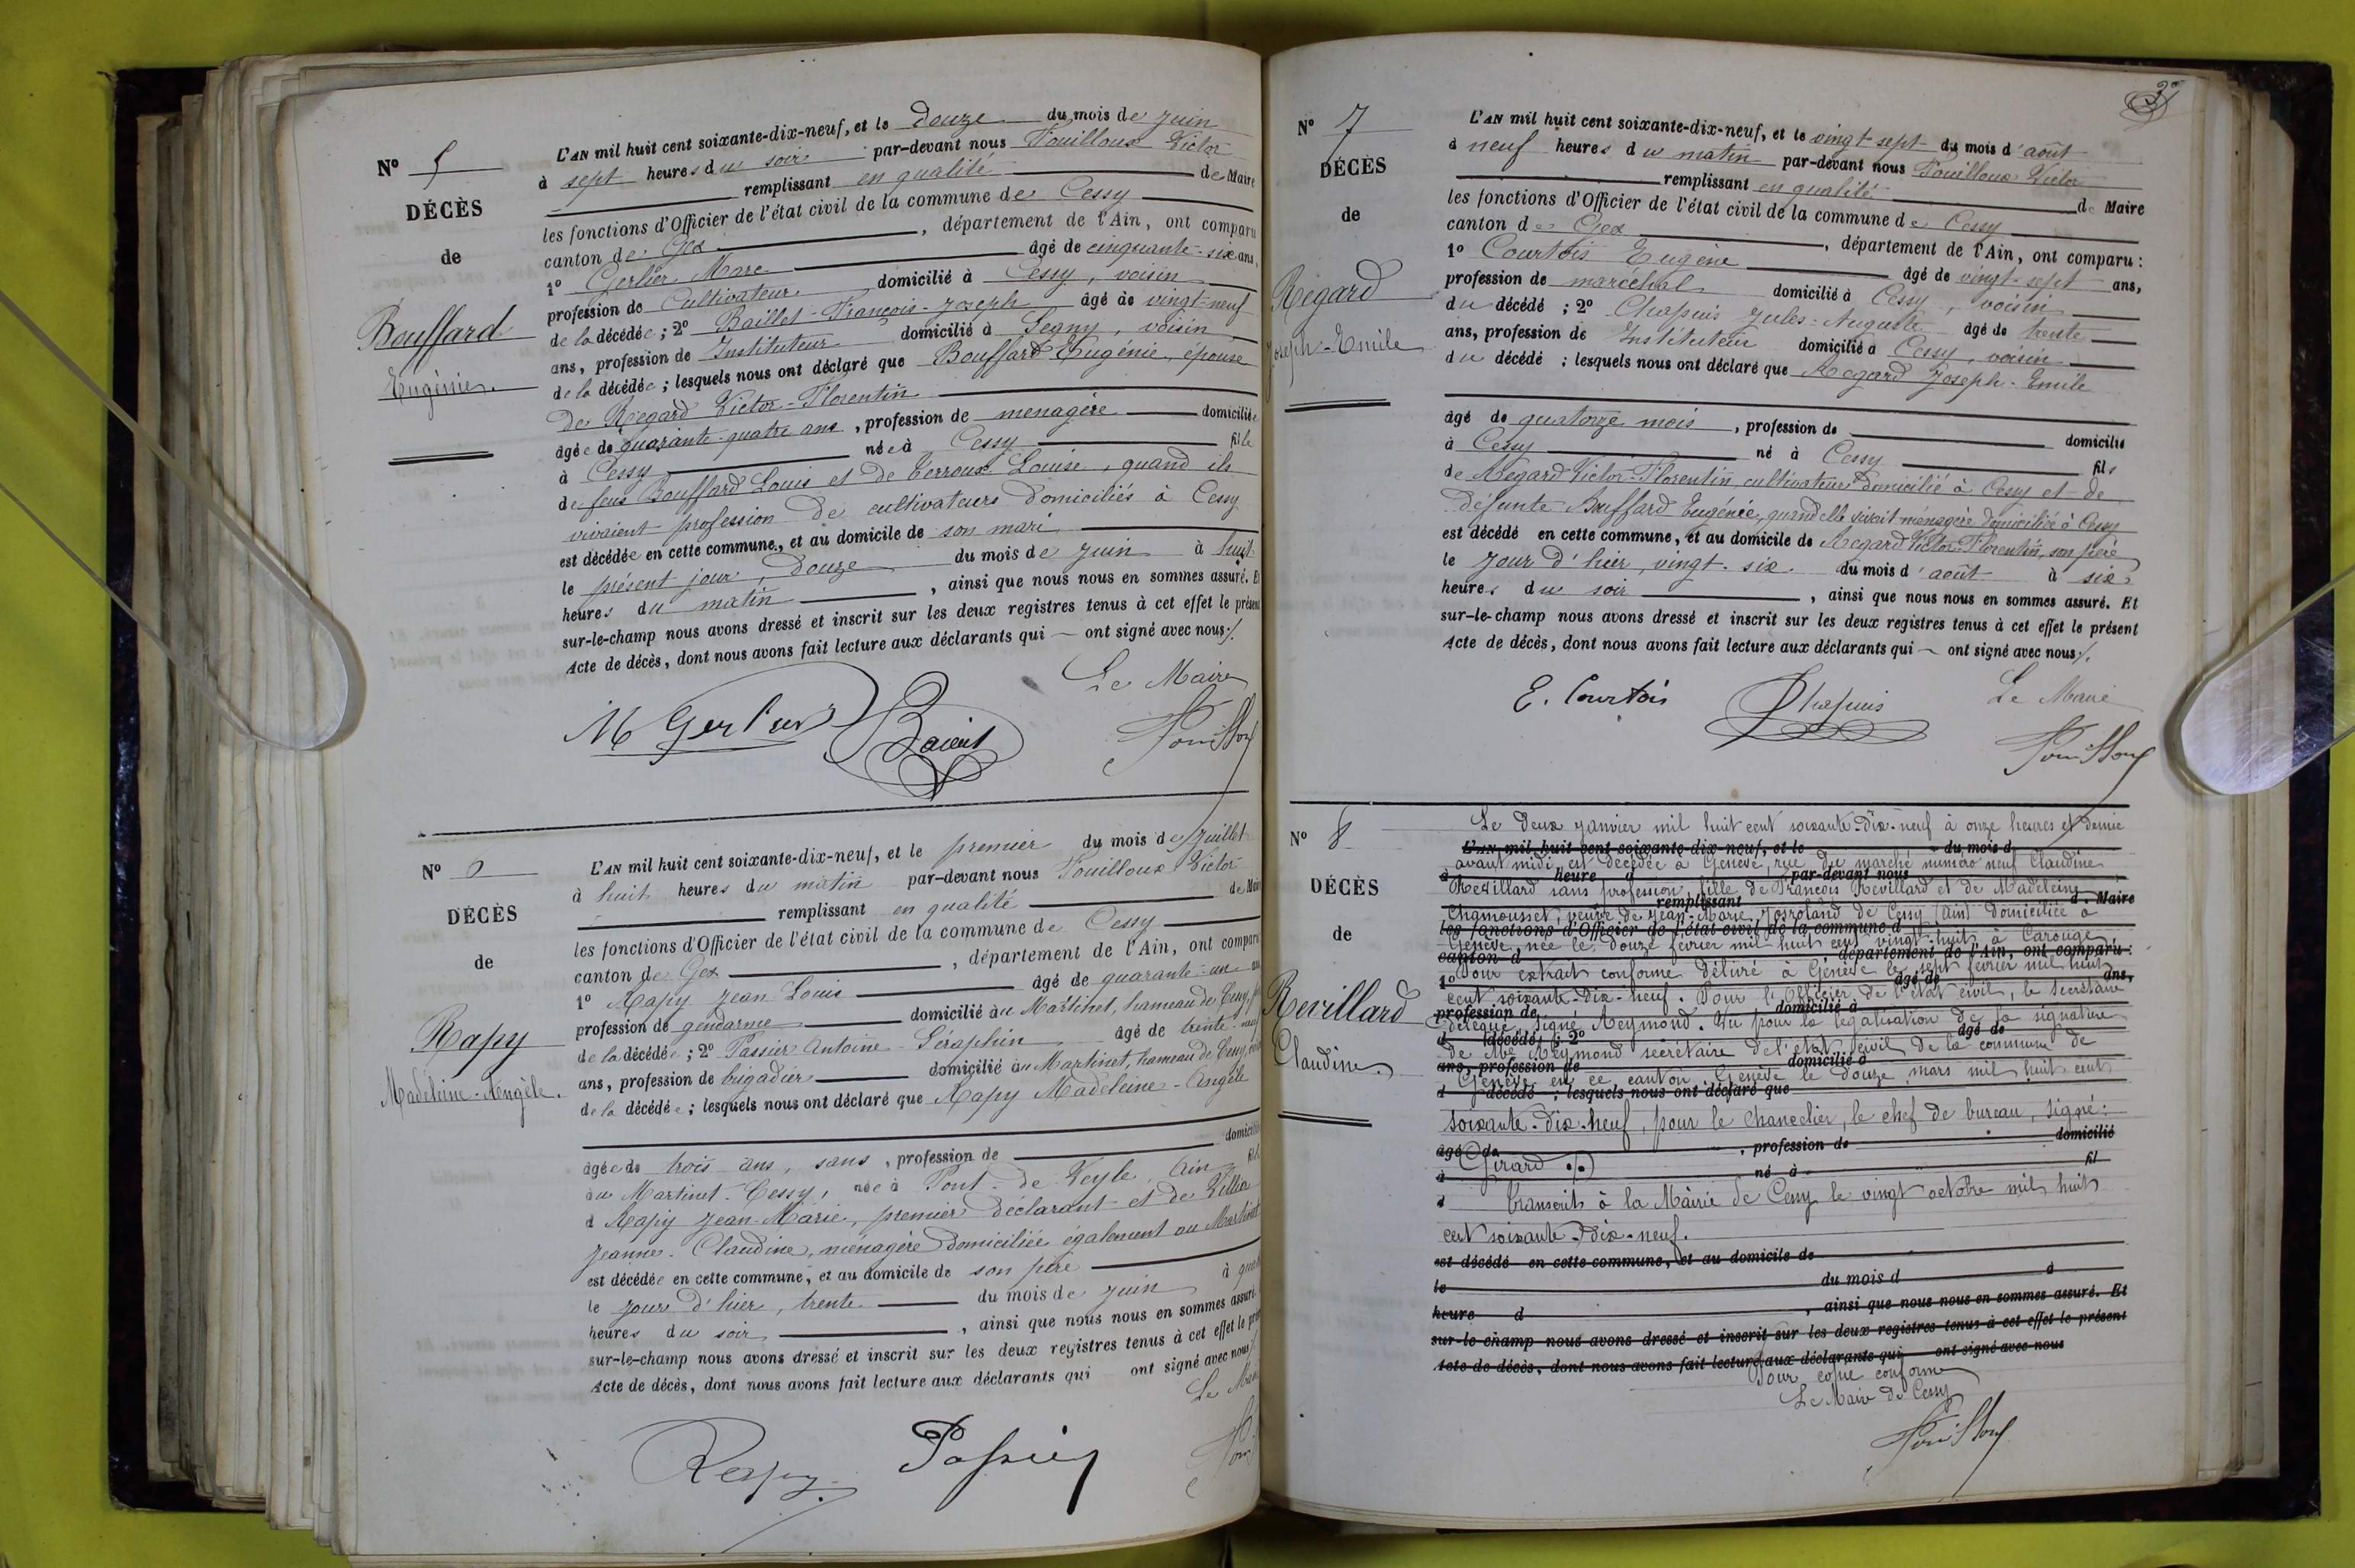 N° 5
DÉCÈS
de
Bouffard
Eugénie.
L'AN mil huit cent soixante-dix-neuf, et le douze du mois de juin
à sept heures du soir par-devant nous Fouilloux Victor
remplissant en qualité de Maire
les fonctions d'Officier de l'état civil de la commune de Cessy
canton de Gex, département de l'Ain, ont comparu
1° Gerlier Marc âgé de cinquante-six ans,
profession de Cultivateur domicilié à Cessy, voisin
de la décédée ; 2° Baillet François-Joseph âgé de vingt-neuf
ans, profession de Instituteur domicilié à Segny, voisin
de la décédée ; lesquels nous ont déclaré que Bouffard Eugénie, épouse
de Regard Victor-Florentin
âgée de quarante-quatre ans, profession de menagère domiciliée
à Cessy née à Cessy fille
de feus Bouffard Louis et de Verroux Louise, quand ils
vivaient profession de cultivateurs domiciliés à Cessy
est décédée en cette commune, et au domicile de son mari
le présent jour, douze du mois de juin à huit
heures du matin, ainsi que nous nous en sommes assuré. Et
sur-le-champ nous avons dressé et inscrit sur les deux registres tenus à cet effet le présent
Acte de décès, dont nous avons fait lecture aux déclarants qui ont signé avec nous ./.
Le Maire
M Gerlier
N°
DÉCÈS
de
Rapy
Madeleine-Angèle.
L'AN mil huit cent soixante-dix-neuf, et le premier du mois de juillet
à huit heures du matin par-devant nous Fouilloux Victor
remplissant en qualité de Maire
les fonctions d'Officier de l'état civil de la commune de Cessy
canton de Gex, département de l'Ain, ont comparu
1° Rapy Jean Louis âgé de quarante-un
profession de gendarme domicilié au Martinet, hameau de Cessy,
de la décédée ; 2° Passier Antoine-Séraphin âgé de trente-neuf
ans, profession de brigadier domicilié au Martinet, hameau de Cessy,
de la décédée ; lesquels nous ont déclaré que Rapy Madeleine-Angèle
âgée de trois ans, sans, profession de domicilié
au Martinet-Cessy, née à Pont-de-Veyle Ain
d Rapy Jean-Marie, premier déclarant et de
Jeanne-Claudine, ménagère domiciliée également au Martinet
est décédée en cette commune, et au domicile de son père
le jour d'hier, trente du mois de juin à
heures du soir, ainsi que nous nous en sommes assuré.
sur-le-champ nous avons dressé et inscrit sur les deux registres tenus à cet effet le
Acte de décès, dont nous avons fait lecture aux déclarants qui ont signé avec nous
Le
Rapy Passier
N° 7
DÉCÈS
de
Regard
Joseph-Emile
L'AN mil huit cent soixante-dix-neuf, et le vingt-sept du mois d'août
à neuf heures du matin par-devant nous Fouilloux Victor
remplissant en qualité de Maire
les fonctions d'Officier de l'état civil de la commune de Cessy
canton de Gex, département de l'Ain, ont comparu :
1° Courtois Eugène âgé de vingt-sept ans,
profession de maréchal domicilié à Cessy, voisin
du décédé ; 2° Chapuis Jules-Auguste âgé de trente
ans, profession de Instituteur domicilié à Cessy, voisin
du décédé ; lesquels nous ont déclaré que Regard Joseph-Emile
âgé de quatorze mois, profession de domicilié
à Cessy né à Cessy fils
de Regard Victor-Florentin, cultivateur domicilié à Cessy et de
défunte Bouffard Eugénie, quand elle vivait ménagère domiciliée à Cessy
est décédé en cette commune, et au domicile de Regard Victor-Florentin, son père
le jour d'hier, vingt-six du mois d'août à six
heures du soir, ainsi que nous nous en sommes assuré. Et
sur-le-champ nous avons dressé et inscrit sur les deux registres tenus à cet effet le présent
Acte de décès, dont nous avons fait lecture aux déclarants qui ont signé avec nous ./.
E. Courtois Chapuis Le Maire
N° 8
DÉCÈS
de
Revillard
Claudine.
Le deux janvier mil huit cent soixante-dix-neuf à onze heures et demie
L'AN mil huit cent soixante-dix-neuf, et le du mois d
avant midi est décédée à Genève, rue du marché numéro neuf Claudine
à heure d par-devant nous
Revillard sans profession, fille de François Revillard et de Madeleine
remplissant d Maire
Chamousset, veuve de Jean-Marie de Cessy (Ain) domiciliée à
les fonctions d'Officier de l'état civil de la commune d
Genève, née le douze février mil huit cent vingt-huit à Carouge
canton d département de l'Ain, ont comparu :
Pour extrait conforme délivré à Genève le sept février mil huit
1° âgé de ans,
cent soixante-dix-neuf. Pour l'officier de l'état civil, le secrétaire
profession de domicilié à
délégué, signé Reymond. Vu pour la légalisation de la signature
d décédé ; 2° âgé de
de Mr Reymond secrétaire de l'état civil de la commune de
ans, profession de domicilié à
Genève en ce canton Genève le douze mars mil huit cent
d décédé ; lesquels nous ont déclaré que
soixante-dix-neuf, pour le chancelier, le chef de bureau, signé :
âgé de , profession de domicilié
Girard
à né à fil
d transcrit à la Mairie de Cessy le vingt octobre mil huit
cent soixante-dix-neuf.
est décédé en cette commune, et au domicile de
le du mois d à
heure d , ainsi que nous nous en sommes assuré. Et
sur-le-champ nous avons dressé et inscrit sur les deux registres tenus à cet effet le présent
Acte de décès, dont nous avons fait lecture aux déclarants qui ont signé avec nous
Pour copie conforme
Le Maire de Cessy